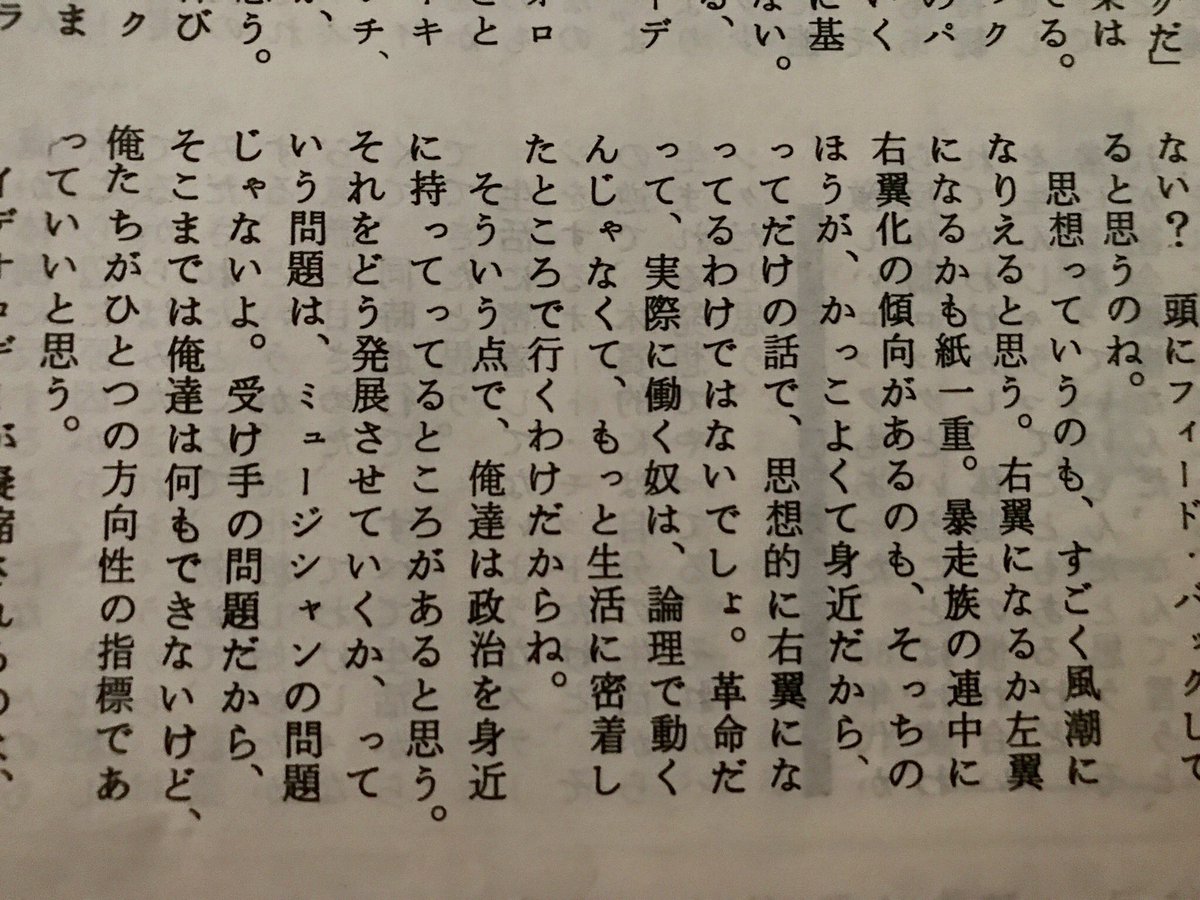 グだ」
てる。
ック
のパ
いく
に基
ない。
る、
ーデ
ォロ
こと
キ
チ、
う。
び
ク
ま
ラ
ない? 頭にフィード・バックして
ると思うのね。
思想っていうのも、すごく風潮に
なりえると思う。右翼になるか左翼
になるかも紙一重。暴走族の連中に
右翼化の傾向があるのも、そっちの
ほうが、かっこよくて身近だから、
ってだけの話で、思想的に右翼にな
ってるわけではないでしょ。革命だ
って、実際に働く奴は、論理で動く
んじゃなくて、もっと生活に密着し
たところで行くわけだからね。
そういう点で、俺達は政治を身近
に持ってってるところがあると思う。
それをどう発展させていくか、って
いう問題は、ミュージシャンの問題
じゃないよ。受け手の問題だから、
そこまでは俺達は何もできないけど、
俺たちがひとつの方向性の指標であ
っていいと思う。
イデオロギーが凝縮されるのは、